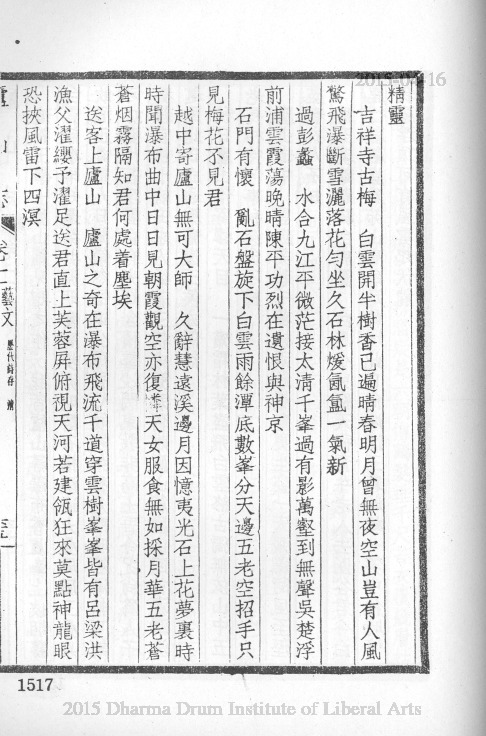 2015-04-16
精靈
吉祥寺古梅　白雲開半樹香已遍晴春明月曾無夜空山豈有人風
驚飛瀑斷雪灑落花勻坐久石林煖氤氳一氣新
過彭蠡　水合九江平微茫接太清千峯過有影萬壑到無聲吳楚浮
前浦雲霞蕩晚晴陳平功烈在遺恨與神京
石門有懷　亂石盤旋下白雲雨餘潭底數峯分天邊五老空招手只
見梅花不見君
越中寄廬山無可大師　久辭慧遠溪邊月因憶夷光石上花夢裏時
時聞瀑布曲中日日見朝霞觀空亦復 天女服食無如採月華五老蒼
蒼烟霧隔知君何處着塵埃
送客上廬山　廬山之奇在瀑布飛流千道穿雲樹峯峯皆有呂梁洪
漁父濯纓予濯足送君直上芙蓉屏俯視天河若建瓴狂來莫點神龍眼
恐挾風雷下四溟
山志　卷十二　藝文　歷代詩存　清
1517
2015 Dharma Drum Institute of Liberal Arts